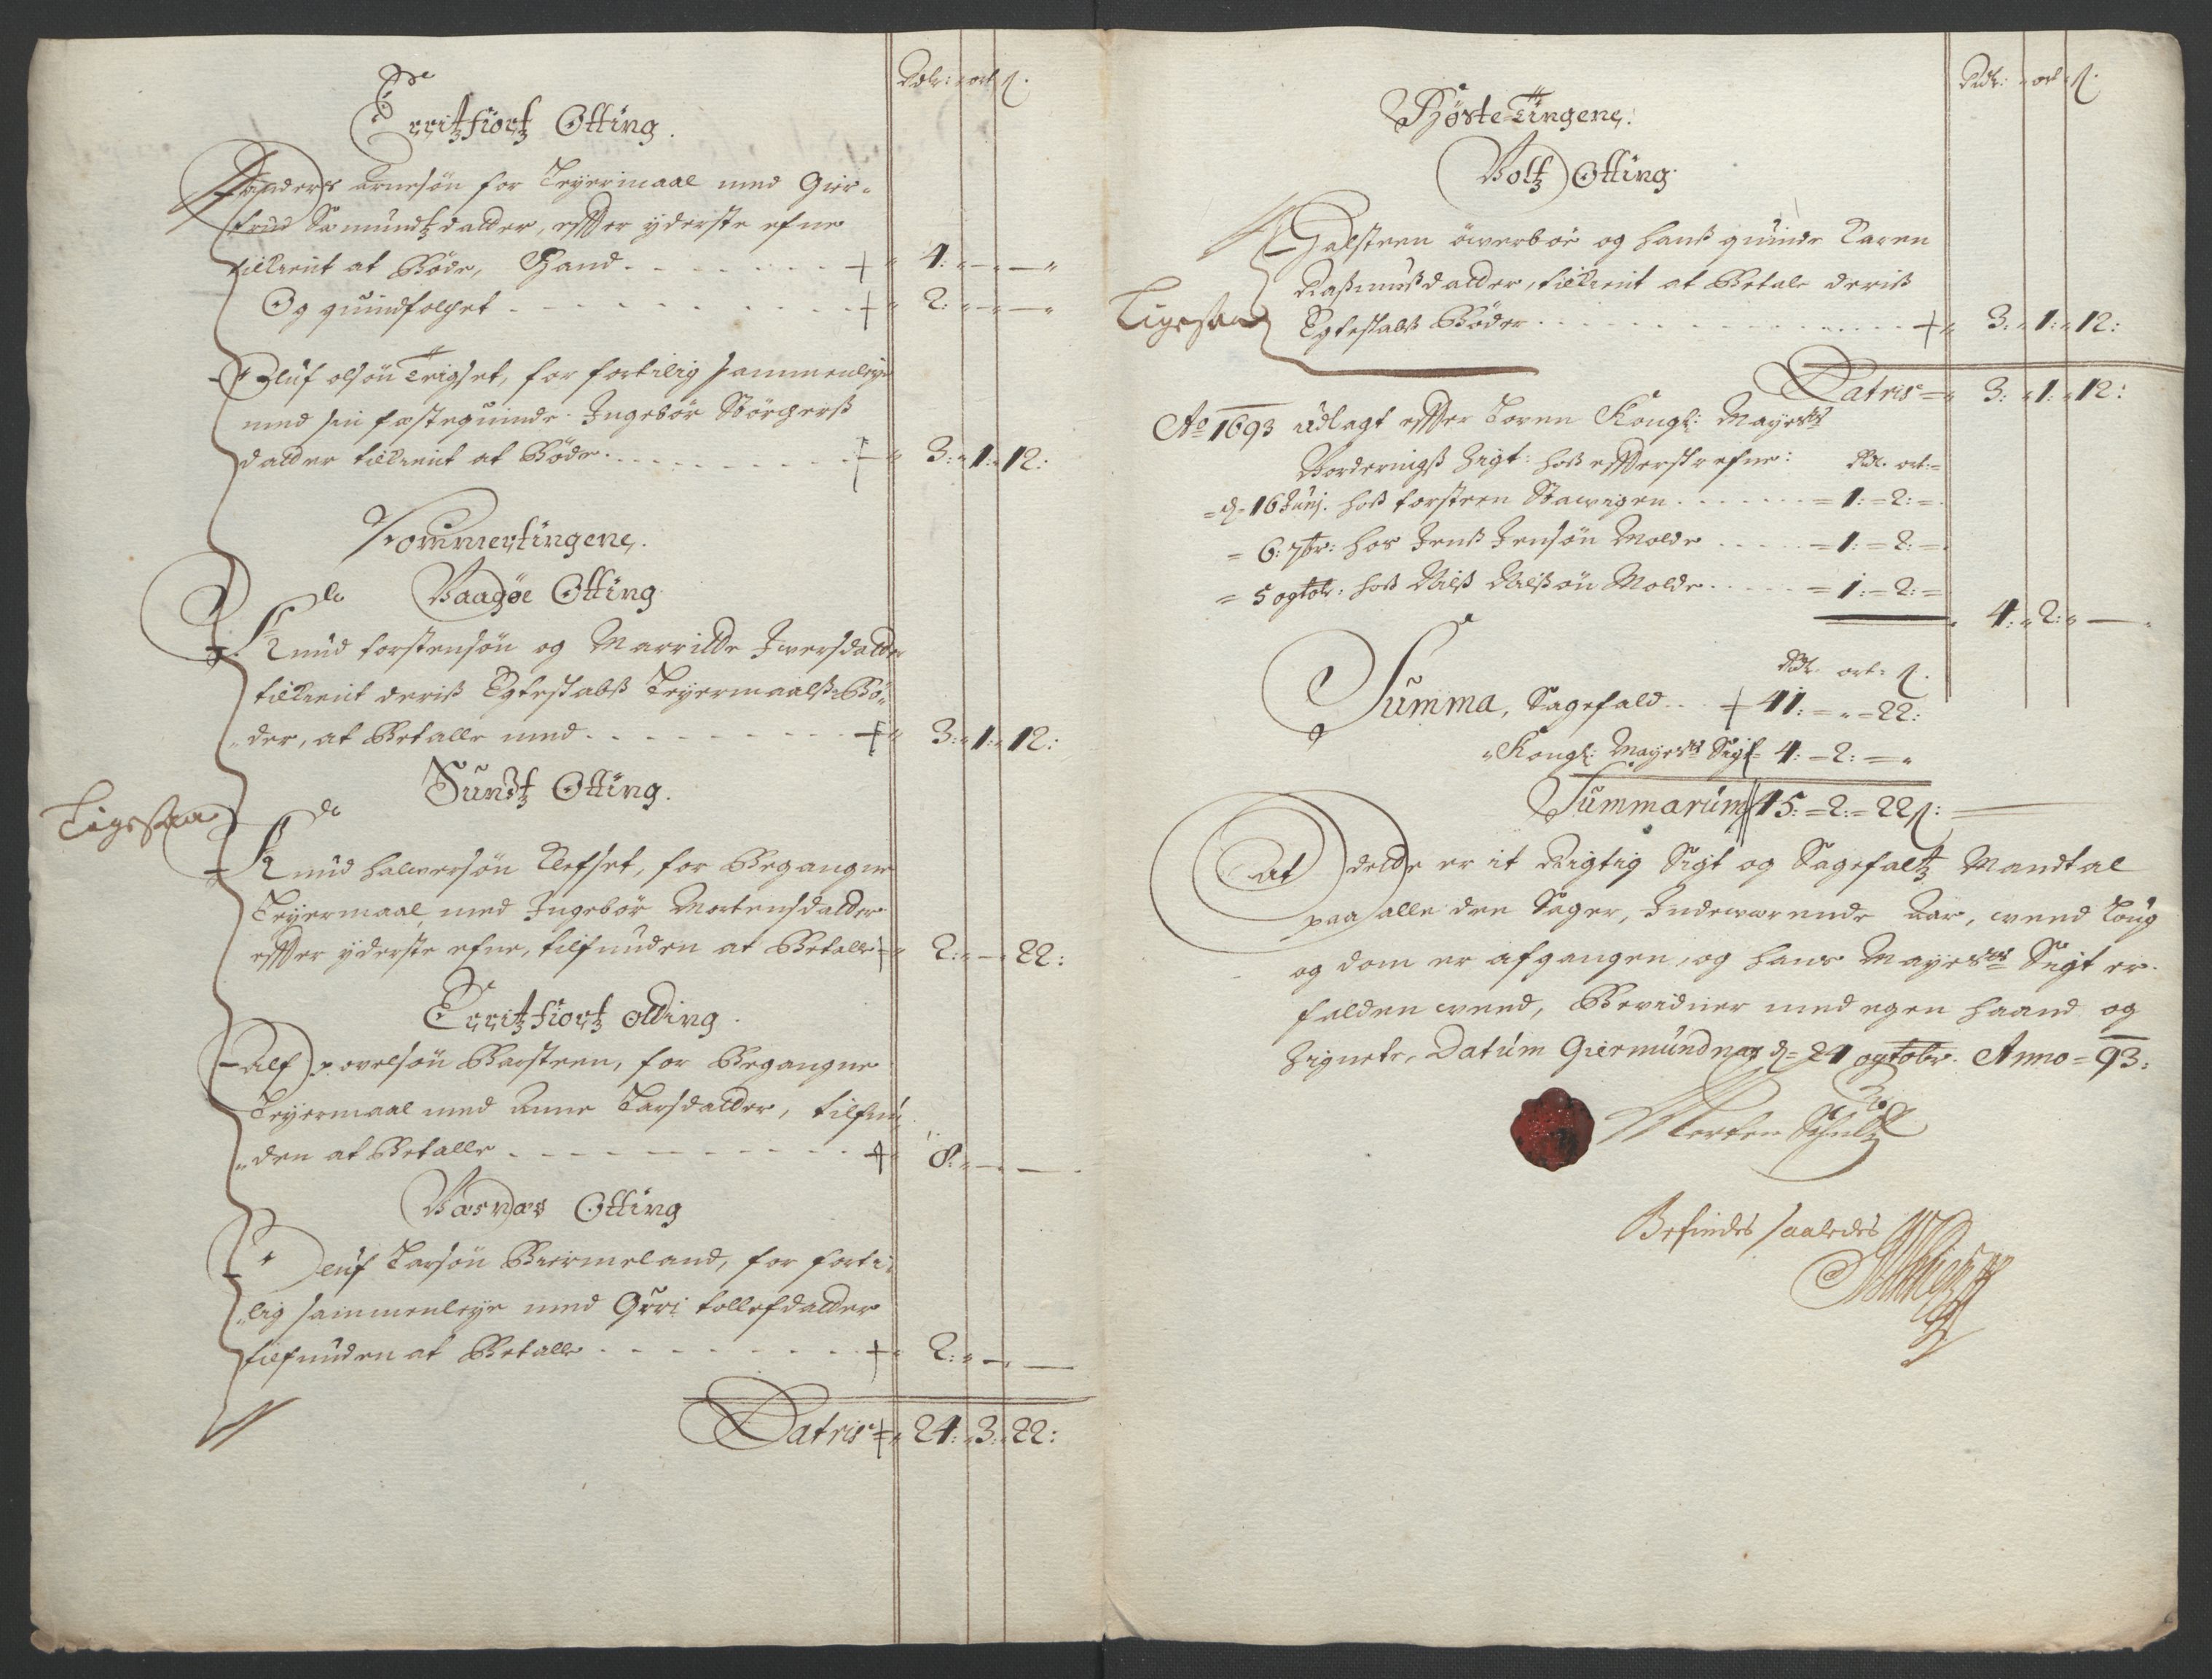 Rdlr: ort ß.
Erritzfiortz Otting.
Anders Arnesøn for Leyermaal med Gier-
trud Siømundtzdatter, effter yderste efne
tilkient at Bøde, Hand - - - - 4: - -
Og quindfolchet - - - - 2: - -
Oluf olsøn Trigset, for fortilig sammenleye
med sin fæstequinde Ingebør Størchers
datter tilkient at Bøde - - - - 3: 1: 12:
Sommertingene.
Vaagøe Otting
Knud torstensøn og Marritte Iversdatter
tilkient deris Egteskabs Leyermaals Bø-
der, at Betalle med - - - - 3: 1: 12:
Sundtz Otting.
Ligesaa
Knud halvorsøn Klefset, for Begangne
Leyermaal med Ingebør Mortensdatter
effter yderste efne, tilfunden at Betalle 2: - 22:
Erritzfiortz otting.
Alf povelsøn Barsteen, for Begangne
Leyermaal med Anne Larsdatter, tilfun-
den at Betalle - - - - 8: - -
Værnæs Otting
Oluf Larsøn Biermeland, for forti-
lig sammenleye med Gurri tollefdatter
tilfunden at Betalle - - - - 2: - -
Latris 24: 3: 22:
Rdlr: ort ß.
Høste Tingene.
Boltz Otting.
Halsteen øwerbøe og hans quinde Karen
Rasmusdatter, tilkient at Betale deris
Ligesaa
Egteskabs Bøder - - - - 3: 1: 12:
Latris 3: 1: 12:
Ao 1693 udlagt effter Loven Kongl: Mayestz
Vorderings Sigt: hos effterskrefne: Rdr. ort
d 16 Junj. hos torsteen Stawigen - - - 1: 2:
6: 7br: hos Jens Jensøn Molde - - - 1: 2:
5 ogtobr: hos Nils Nilsøn Molde - - - 1: 2:
4: 2: -
Rdr. ort. ß.
Summa, Sagefald - - 41: - 22:
Kongl: Mayestz Sigt 4: 2: -
Summarum 45: 2: 22 ß:
At dette er it Rigtig Sigt og Sagefaltz Mandtal
paa alle den Sager, Indewærende Aar, wed Loug
og dom er afgangen, og hans Mayestz Sigt er
falden wed, Bevidner med egen haand og
Zignete, Datum Giermundnæs d: 24 ogtobr. Anno = 93:
Morten Schultz
Befindes saaledes